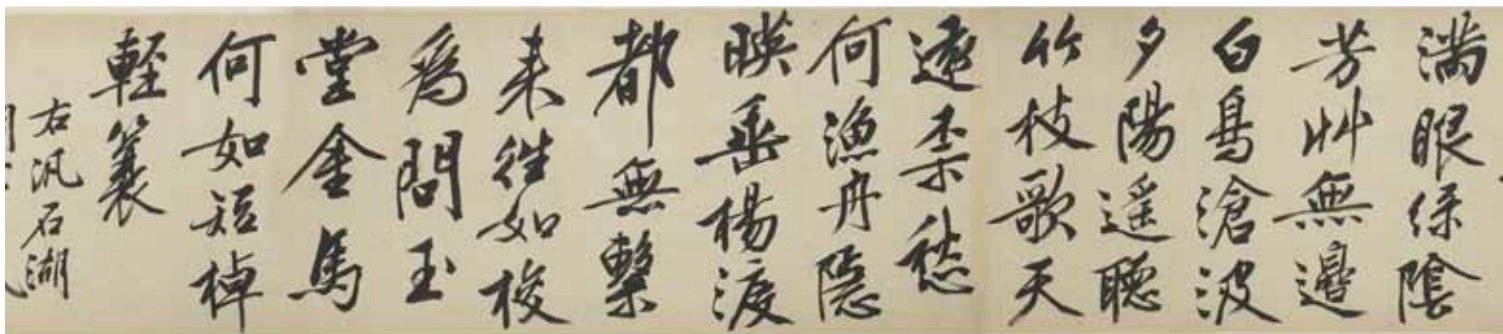 滿眼緑陰
芳艸無邊
白鳥滄波
夕陽遥聽
竹枝歌天
遠柰愁
何漁舟隱
映垂楊渡
都無繫
来往如梭
為問玉
堂金馬
何如短棹
輕蓑
右汎石湖